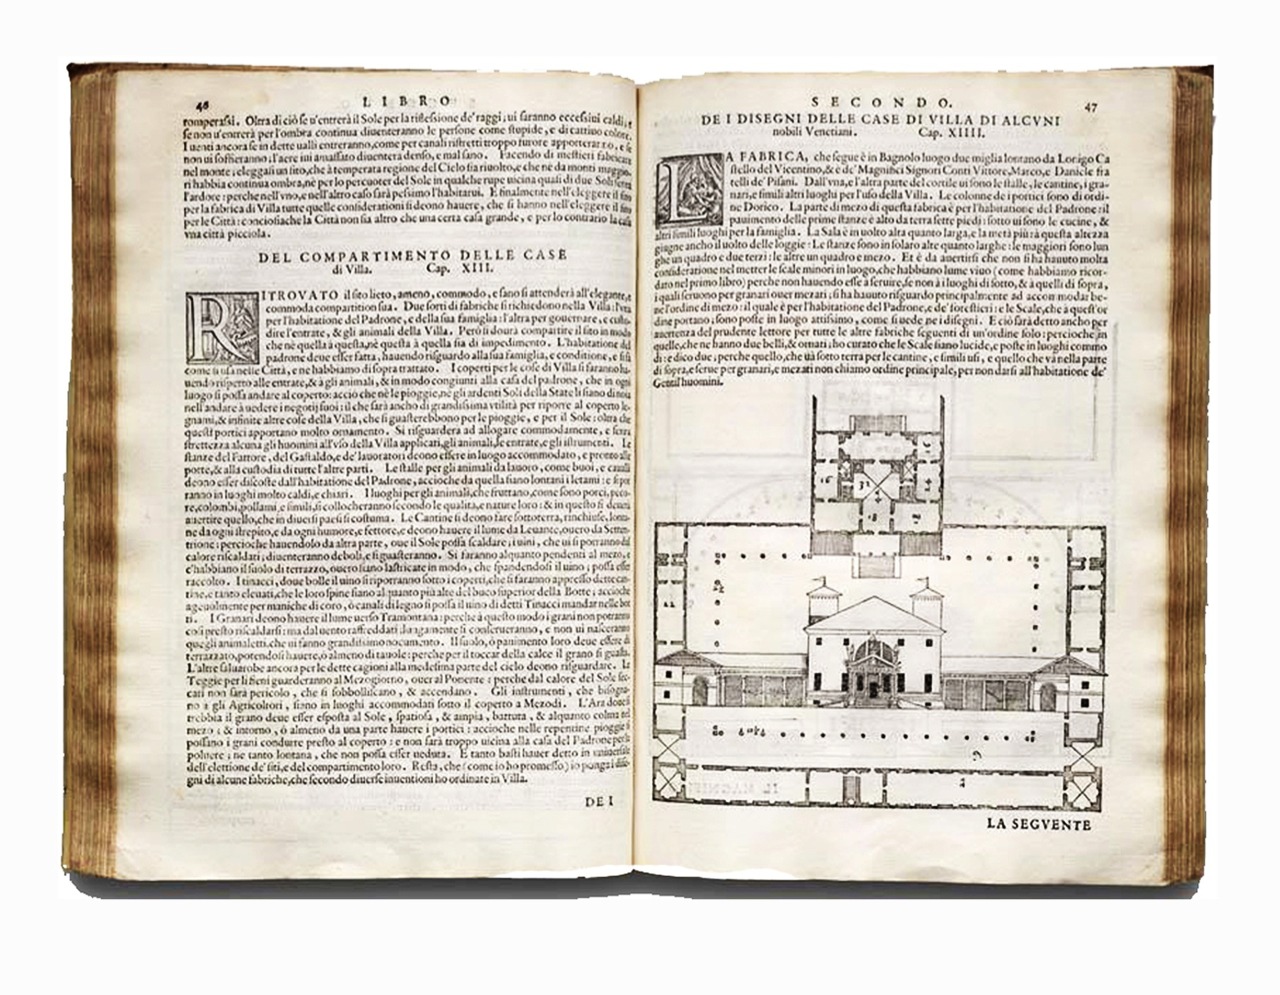 46
LIBRO
romperassi. Oltra di ciò se u'entrerà il Sole per la riflessione de' raggi, ui saranno eccessiui caldi, e
se non u'entrerà per l'ombra continua diuenteranno le persone come stupide, e di cattiuo colore.
I uenti ancora se in dette ualli entreranno, come per canali ristretti troppo furore apporteranno, e se
non ui soffieranno: l'aere iui amassato diuenterà denso, e mal sano. Facendo di mestieri fabricare
nel monte: eleggasi un sito, che à temperata regione del Cielo sia riuolto, e che nè da monti maggio-
ri habbia continua ombra, nè per lo percuoter del Sole in qualche rupe uicina quasi di due Soli senta
l'ardore: perche nell'vno, e nell'altro caso sarà pessimo l'habitarui. E finalmente nell'eleggere il sito
per la fabrica di Villa tutte quelle considerationi si deono hauere, che si hanno nell'eleggere il sito
per le Città: conciosiache la Città non sia altro che una certa casa grande, e per lo contrario la casa
vna città picciola.
DEL COMPARTIMENTO DELLE CASE
di Villa. Cap. XIII.
RITROVATO il sito lieto, ameno, commodo, e sano si attenderà all'elegante, e
commoda compartition sua. Due sorti di fabriche si richiedono nella Villa: l'vna
per l'habitatione del Padrone, e della sua famiglia: l'altra per gouernare, e custo-
dire l'entrate, & gli animali della Villa. Però si dourà compartire il sito in modo
che nè quella à questa, nè questa à quella sia di impedimento. L'habitatione del
padrone deue esser fatta, hauendo risguardo alla sua famiglia, e conditione, e si fà
come si usa nelle Città, e ne habbiamo di sopra trattato. I coperti per le cose di Villa si faranno ha-
uendo rispetto alle entrate, & à gli animali, & in modo congiunti alla casa del padrone, che in ogni
luogo si possa andare al coperto: acciò che nè le pioggie, nè gli ardenti Soli della State li siano di noia
nell'andare à uedere i negotij suoi: il che sarà ancho di grandissima vtilità per riporre al coperto le-
gnami, & infinite altre cose della Villa, che si guasterebbono per le pioggie, e per il Sole: oltra che
questi portici apportano molto ornamento. Si risguarderà ad allogare commodamente, e senza
strettezza alcuna gli huomini all'vso della Villa applicati, gli animali, le entrate, e gli istrumenti. Le
stanze del Fattore, del Gastaldo, e de' lauoratori deono essere in luogo accommodato, e pronto alle
porte, & alla custodia di tutte l'altre parti. Le stalle per gli animali da lauoro, come buoi, e caualli
deono esser discoste dall'habitatione del Padrone, accioche da quella siano lontani i letami: e si por-
ranno in luoghi molto caldi, e chiari. I luoghi per gli animali, che fruttano, come sono porci, peco-
re, colombi, pollami, e simili, si collocheranno secondo le qualità, e nature loro: & in questo si deuerà
auertire quello, che in diuersi paesi si costuma. Le Cantine si deono fare sottoterra, rinchiuse, lonta-
ne da ogni strepito, e da ogni humore, e fettore, e deono hauere il lume da Leuante, ouero da Setten-
trione: percioche hauendolo da altra parte, oue il Sole possa scaldare, i uini, che ui si porranno dal
calore riscaldati, diuenteranno deboli, e si guasteranno. Si faranno alquanto pendenti al mezo, e
c'habbiano il suolo di terrazzo, ouero siano lastricate in modo, che spandendosi il uino, possa esser
raccolto. I tinacci, doue bolle il uino si riporranno sotto i coperti, che si faranno appresso dette can-
tine, e tanto eleuati, che le loro spine siano alquanto più alte del buco superior della Botte, accioche
ageuolmente per maniche di coro, ò canali di legno si possa il uino di detti Tinacci mandar nelle bot
ti. I Granari deono hauere il lume uerso Tramontana: perche à questo modo i grani non potranno
così presto riscaldarsi: ma dal uento raffreddati lungamente si conserueranno, e non ui nasceranno
quegli animaletti, che ui fanno grandissimo nocumento. Il suolo, ò pauimento loro deue essere di
terrazzato, potendosi hauere, ò almeno di tauole: perche per il toccar della calce il grano si guasta.
L'altre saluarobe ancora per le dette cagioni alla medesima parte del cielo deono risguardare. Le
Teggie per li fieni guarderanno al Mezogiorno, ouer al Ponente: perche dal calore del Sole sec-
cati non sarà pericolo, che si sobbolliscano, & accendano. Gli instrumenti, che bisogna-
no à gli Agricoltori, siano in luoghi accommodati sotto il coperto a Mezodì. L'Ara doue si
trebbia il grano deue esser esposta al Sole, spatiosa, & ampia, battuta, & alquanto colma nel
mezo: & intorno, ò almeno da una parte hauere i portici: accioche nelle repentine pioggie si
possano i grani condurre presto al coperto: e non sarà troppo uicina alla casa del Padrone per la
poluere, nè tanto lontana, che non possa esser ueduta. E tanto basti hauer detto in uniuersale
dell'elettione de' siti, e del compartimento loro. Resta, che (come io ho promesso) io ponga i dise-
gni di alcune fabriche, che secondo diuerse inuentioni ho ordinate in Villa.
DE I
SECONDO.
47
DE I DISEGNI DELLE CASE DI VILLA DI ALCVNI
nobili Venetiani. Cap. XIIII.
LA FABRICA, che segue è in Bagnolo luogo due miglia lontano da Lonigo Ca
stello del Vicentino, & è de' Magnifici Signori Conti Vittore, Marco, e Daniele fra
telli de' Pisani. Dall'vna, e l'altra parte del cortile ui sono le stalle, le cantine, i gra-
nari, e simili altri luoghi per l'uso della Villa. Le colonne de i portici sono di ordi-
ne Dorico. La parte di mezo di questa fabrica è per l'habitatione del Padrone: il
pauimento delle prime stanze è alto da terra sette piedi: sotto ui sono le cucine, &
altri simili luoghi per la famiglia. La Sala è in uolto alta quanto larga, e la metà più: à questa altezza
giugne ancho il uolto delle loggie: Le stanze sono in solaro alte quanto larghe: le maggiori sono lun
ghe un quadro e due terzi: le altre un quadro e mezo. Et è da auertirsi che non si ha hauuto molta
consideratione nel metter le scale minori in luogo, che habbiano lume viuo (come habbiamo ricor-
dato nel primo libro) perche non hauendo esse à seruire, se non à i luoghi di sotto, & à quelli di sopra,
i quali seruono per granari ouer mezati; si ha hauuto risguardo principalmente ad accommodar be-
ne l'ordine di mezo: il quale è per l'habitatione del Padrone, e de' forestieri: e le Scale, che à quest'or
dine portano; sono poste in luogo attissimo, come si uede per i disegni. E ciò sarà detto ancho per
auertenza del prudente lettore per tutte le altre fabriche seguenti di un'ordine solo: percioche in
quelle, che ne hanno due belli, & ornati; ho curato che le Scale siano lucide, e poste in luoghi commo
di: e dico due; perche quello, che uà sotto terra per le cantine, e simili usi, e quello che và nella parte
di sopra, e serue per granari, e mezati non chiamo ordine principale, per non darsi all'habitatione de'
Gentil'huomini.
16
32
18
LA SEGVENTE